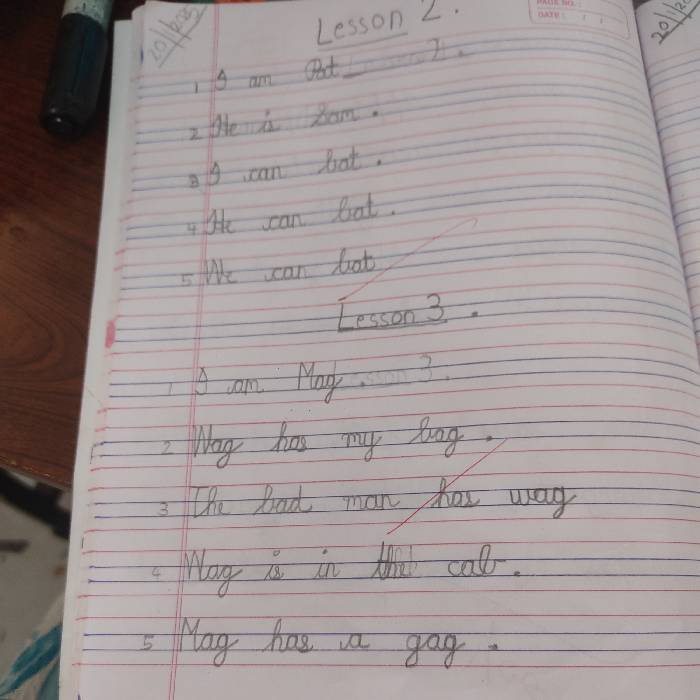 Lesson 2.
PAGE NO.:
DATE: / /
1 I am Pat
2 He is Sam.
3 I can bat.
4 He can bat.
5 We can bat
Lesson 3.
1 I am Mag
2 Wag has my bag.
3 The bad man has wag
4 Wag is in the cab.
5 Mag has a gag.